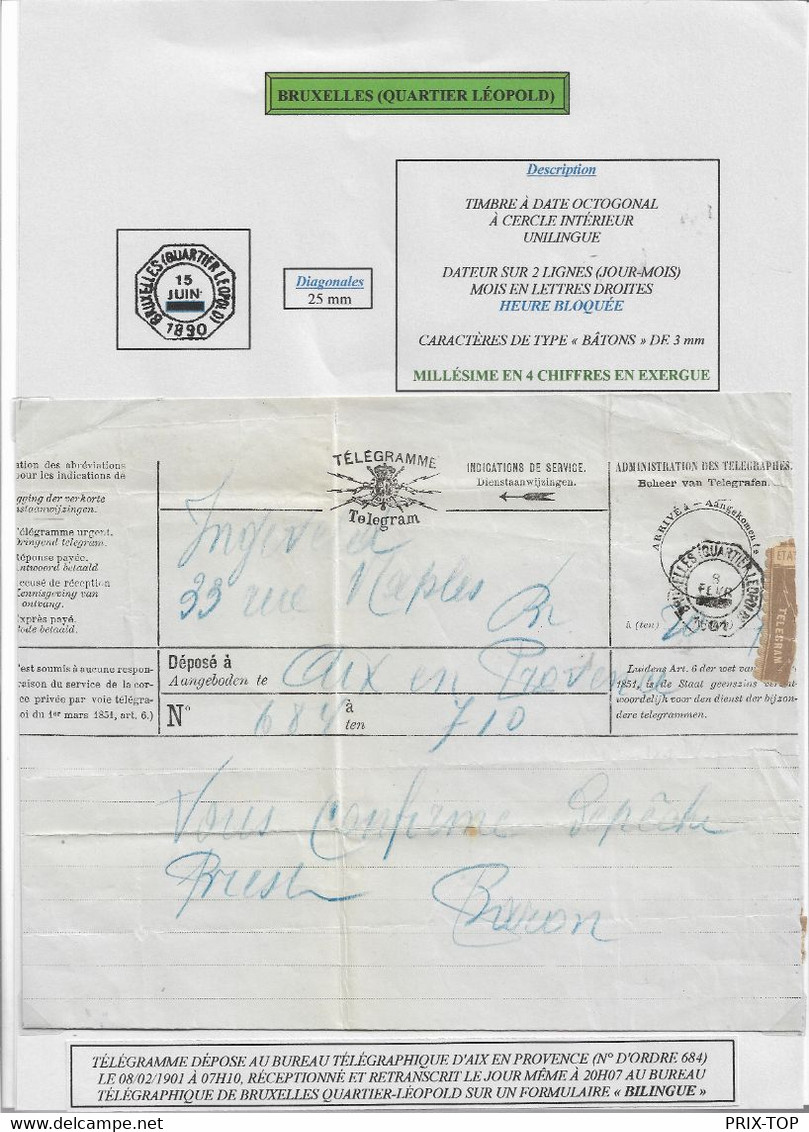 BRUXELLES (QUARTIER LÉOPOLD)
Description
TIMBRE À DATE OCTOGONAL
À CERCLE INTÉRIEUR
UNILINGUE
DATEUR SUR 2 LIGNES (JOUR-MOIS)
MOIS EN LETTRES DROITES
HEURE BLOQUÉE
CARACTÈRES DE TYPE « BÂTONS » DE 3 mm
MILLÉSIME EN 4 CHIFFRES EN EXERGUE
BRUXELLES (QUARTIER LEOPOLD)
15
JUIN
1890
Diagonales
25 mm
ation des abréviations
pour les indications de
gging der verkorte
nstaanwijzingen.
Télégramme urgent.
bringend telegram.
Réponse payée.
Antwoord betaald
ccusé de réception
Kennisgeving van
ontvang.
Exprès payé.
Bode betaald.
TÉLÉGRAMME
Telegram
INDICATIONS DE SERVICE.
Dienstaanwijzingen.
ADMINISTRATION DES TÉLÉGRAPHES.
Beheer van Telegrafen.
ARRIVÉ à - Aangekomen te
BRUXELLES (QUARTIER LEOPOLD)
8
FEVR
1901
à (ten) 20 7
TELEGRAM
33 rue Naples
'est soumis à aucune respon-
raison du service de la cor-
ce privée par voie télégra-
oi du 1er mars 1851, art. 6.)
Déposé à
Aangeboden te
Aix en Provence
N° 684 à
ten 710
Luidens Art. 6 der wet van
1851, is de Staat geenszins
woordelijk voor den dienst der bijzon-
dere telegrammen.
Vous confirme dépêche
Brest Baron
TÉLÉGRAMME DÉPOSE AU BUREAU TÉLÉGRAPHIQUE D'AIX EN PROVENCE (N° D'ORDRE 684)
LE 08/02/1901 À 07H10, RÉCEPTIONNÉ ET RETRANSCRIT LE JOUR MÊME À 20H07 AU BUREAU
TÉLÉGRAPHIQUE DE BRUXELLES QUARTIER-LÉOPOLD SUR UN FORMULAIRE « BILINGUE »
PRIX-TOP